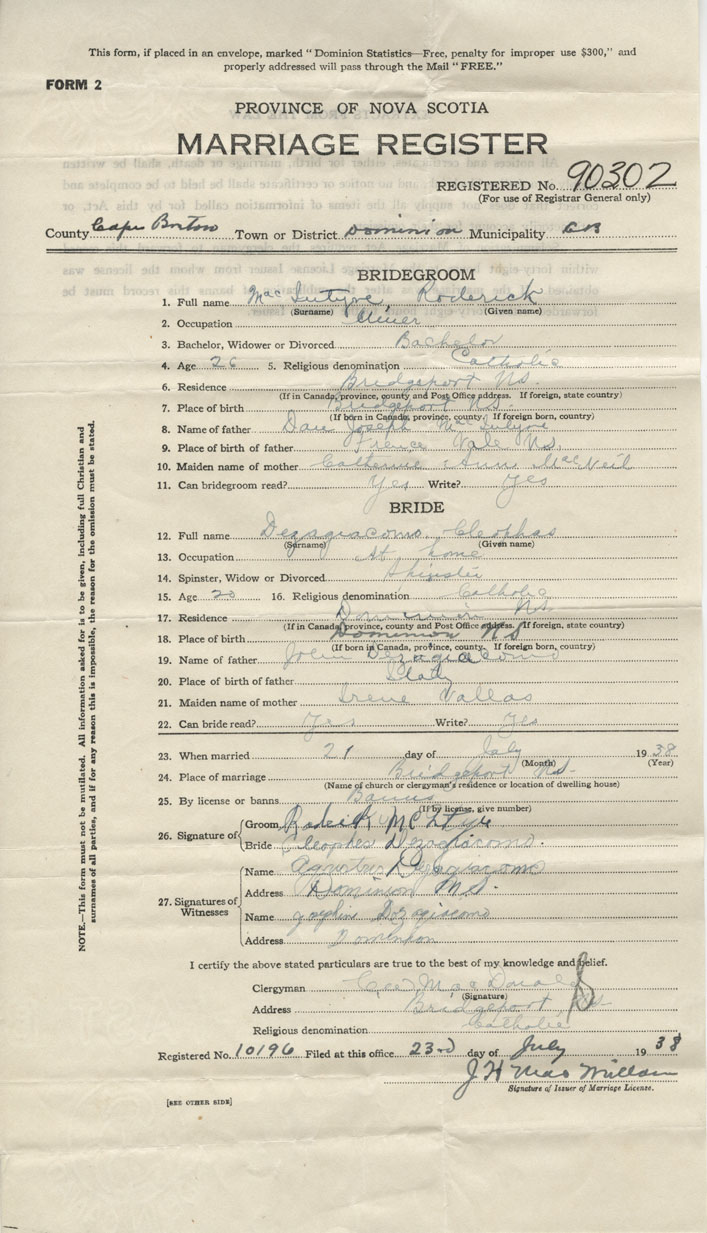 This form, if placed in an envelope, marked "Dominion Statistics—Free, penalty for improper use $300," and
properly addressed will pass through the Mail "FREE."
FORM 2
PROVINCE OF NOVA SCOTIA
MARRIAGE REGISTER
REGISTERED No. 90302
(For use of Registrar General only)
County Cape Breton Town or District Dominion Municipality CB
BRIDEGROOM
1. Full name Mac Intyre, Roderick
(Surname) (Given name)
2. Occupation Miner
3. Bachelor, Widower or Divorced Bachelor
4. Age 26 5. Religious denomination Catholic
6. Residence Bridgeport NS.
(If in Canada, province, county and Post Office address. If foreign, state country)
7. Place of birth Bridgeport NS.
(If born in Canada, province, county. If foreign born, country)
8. Name of father Dan Joseph MacIntyre
9. Place of birth of father French Vale NS.
10. Maiden name of mother Catherine Ann MacNeil
11. Can bridegroom read? Yes Write? Yes
BRIDE
12. Full name Dezagiacomo, Cleophas
(Surname) (Given name)
13. Occupation At home
14. Spinster, Widow or Divorced Spinster
15. Age 20 16. Religious denomination Catholic
17. Residence Dominion NS.
(If in Canada, province, county and Post Office address. If foreign, state country)
18. Place of birth Dominion NS
(If born in Canada, province, county. If foreign born, country)
19. Name of father John Dezagiacomo
20. Place of birth of father Italy
21. Maiden name of mother Irene Vallas
22. Can bride read? Yes Write? Yes
23. When married 21 day of July 1938
(Month) (Year)
24. Place of marriage Bridgeport NS.
(Name of church or clergyman's residence or location of dwelling house)
25. By license or banns Banns
(If by license, give number)
26. Signature of
Groom Roderick McIntyre
Bride Cleophas Dezagiacomo.
27. Signatures of Witnesses
Name Dezagiacomo
Address Dominion N.S.
Name Dezagiacomo
Address Dominion
I certify the above stated particulars are true to the best of my knowledge and belief.
Clergyman MacDonald
(Signature)
Address Bridgeport NS
Religious denomination Catholic
Registered No. 10196 Filed at this office 23rd day of July 1938
J H MacMillan
Signature of Issuer of Marriage License.
[SEE OTHER SIDE]
NOTE.—This form must not be mutilated. All information asked for is to be given, including full Christian and
surnames of all parties, and if for any reason this is impossible, the reason for the omission must be stated.